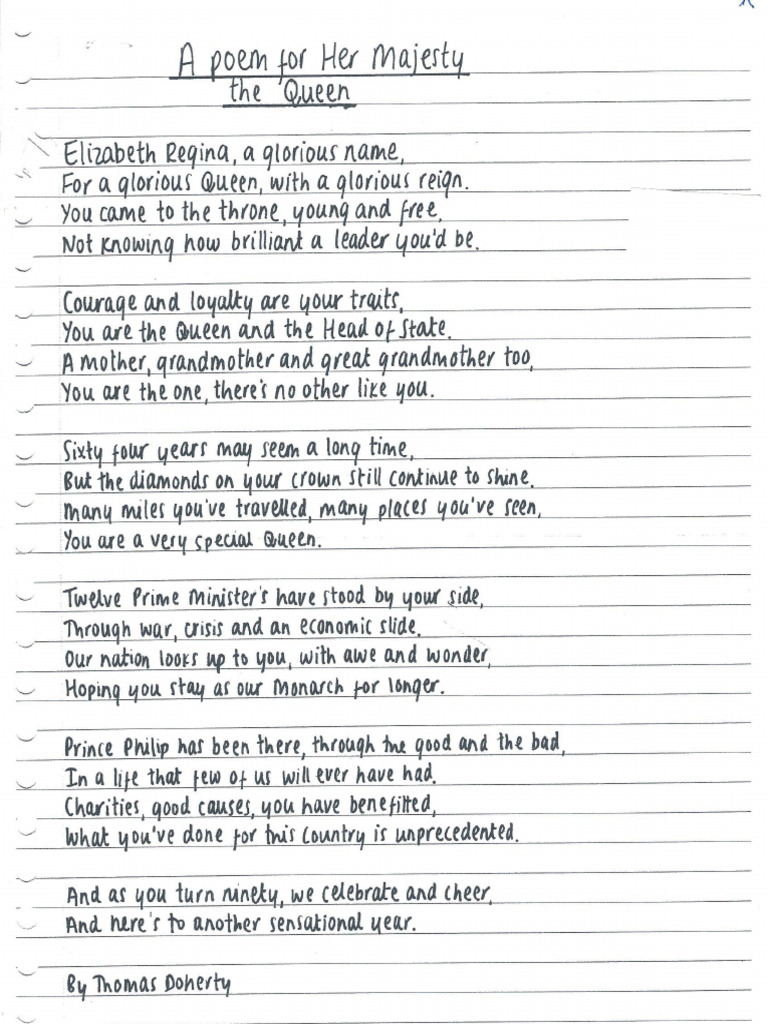 A poem for Her Majesty
the Queen
Elizabeth Regina, a glorious name,
For a glorious Queen, with a glorious reign.
You came to the throne, young and free,
Not knowing how brilliant a leader you'd be.
Courage and loyalty are your traits,
You are the Queen and the Head of State.
A mother, grandmother and great grandmother too,
You are the one, there's no other like you.
Sixty four years may seem a long time,
But the diamonds on your crown still continue to shine.
Many miles you've travelled, many places you've seen,
You are a very special Queen.
Twelve Prime Minister's have stood by your side,
Through war, crisis and an economic slide.
Our nation looks up to you, with awe and wonder,
Hoping you stay as our Monarch for longer.
Prince Philip has been there, through the good and the bad,
In a life that few of us will ever have had.
Charities, good causes, you have benefitted,
What you've done for this Country is unprecedented.
And as you turn ninety, we celebrate and cheer,
And here's to another sensational year.
By Thomas Doherty